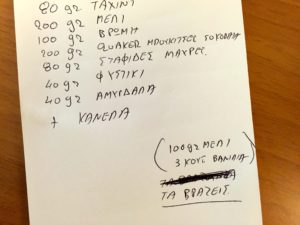 80 gr ΤΑΧΙΝΙ
200 gr ΜΕΛΙ
100 gr ΒΡΩΜΗ
200 gr QUAKER ΜΠΟΥΚΙΤΣΕΣ ΣΟΚΟΛΑΤΑ
80 gr ΣΤΑΦΙΔΕΣ ΜΑΥΡΕΣ
40 gr ΦΥΣΤΙΚΙ
40 gr ΑΜΥΓΔΑΛΑ
+ ΚΑΝΕΛΑ
(100 gr ΜΕΛΙ
3 ΚΟΥΤ ΒΑΝΙΛΙΑ)
ΤΑ ΒΡΑΖΕΙΣ